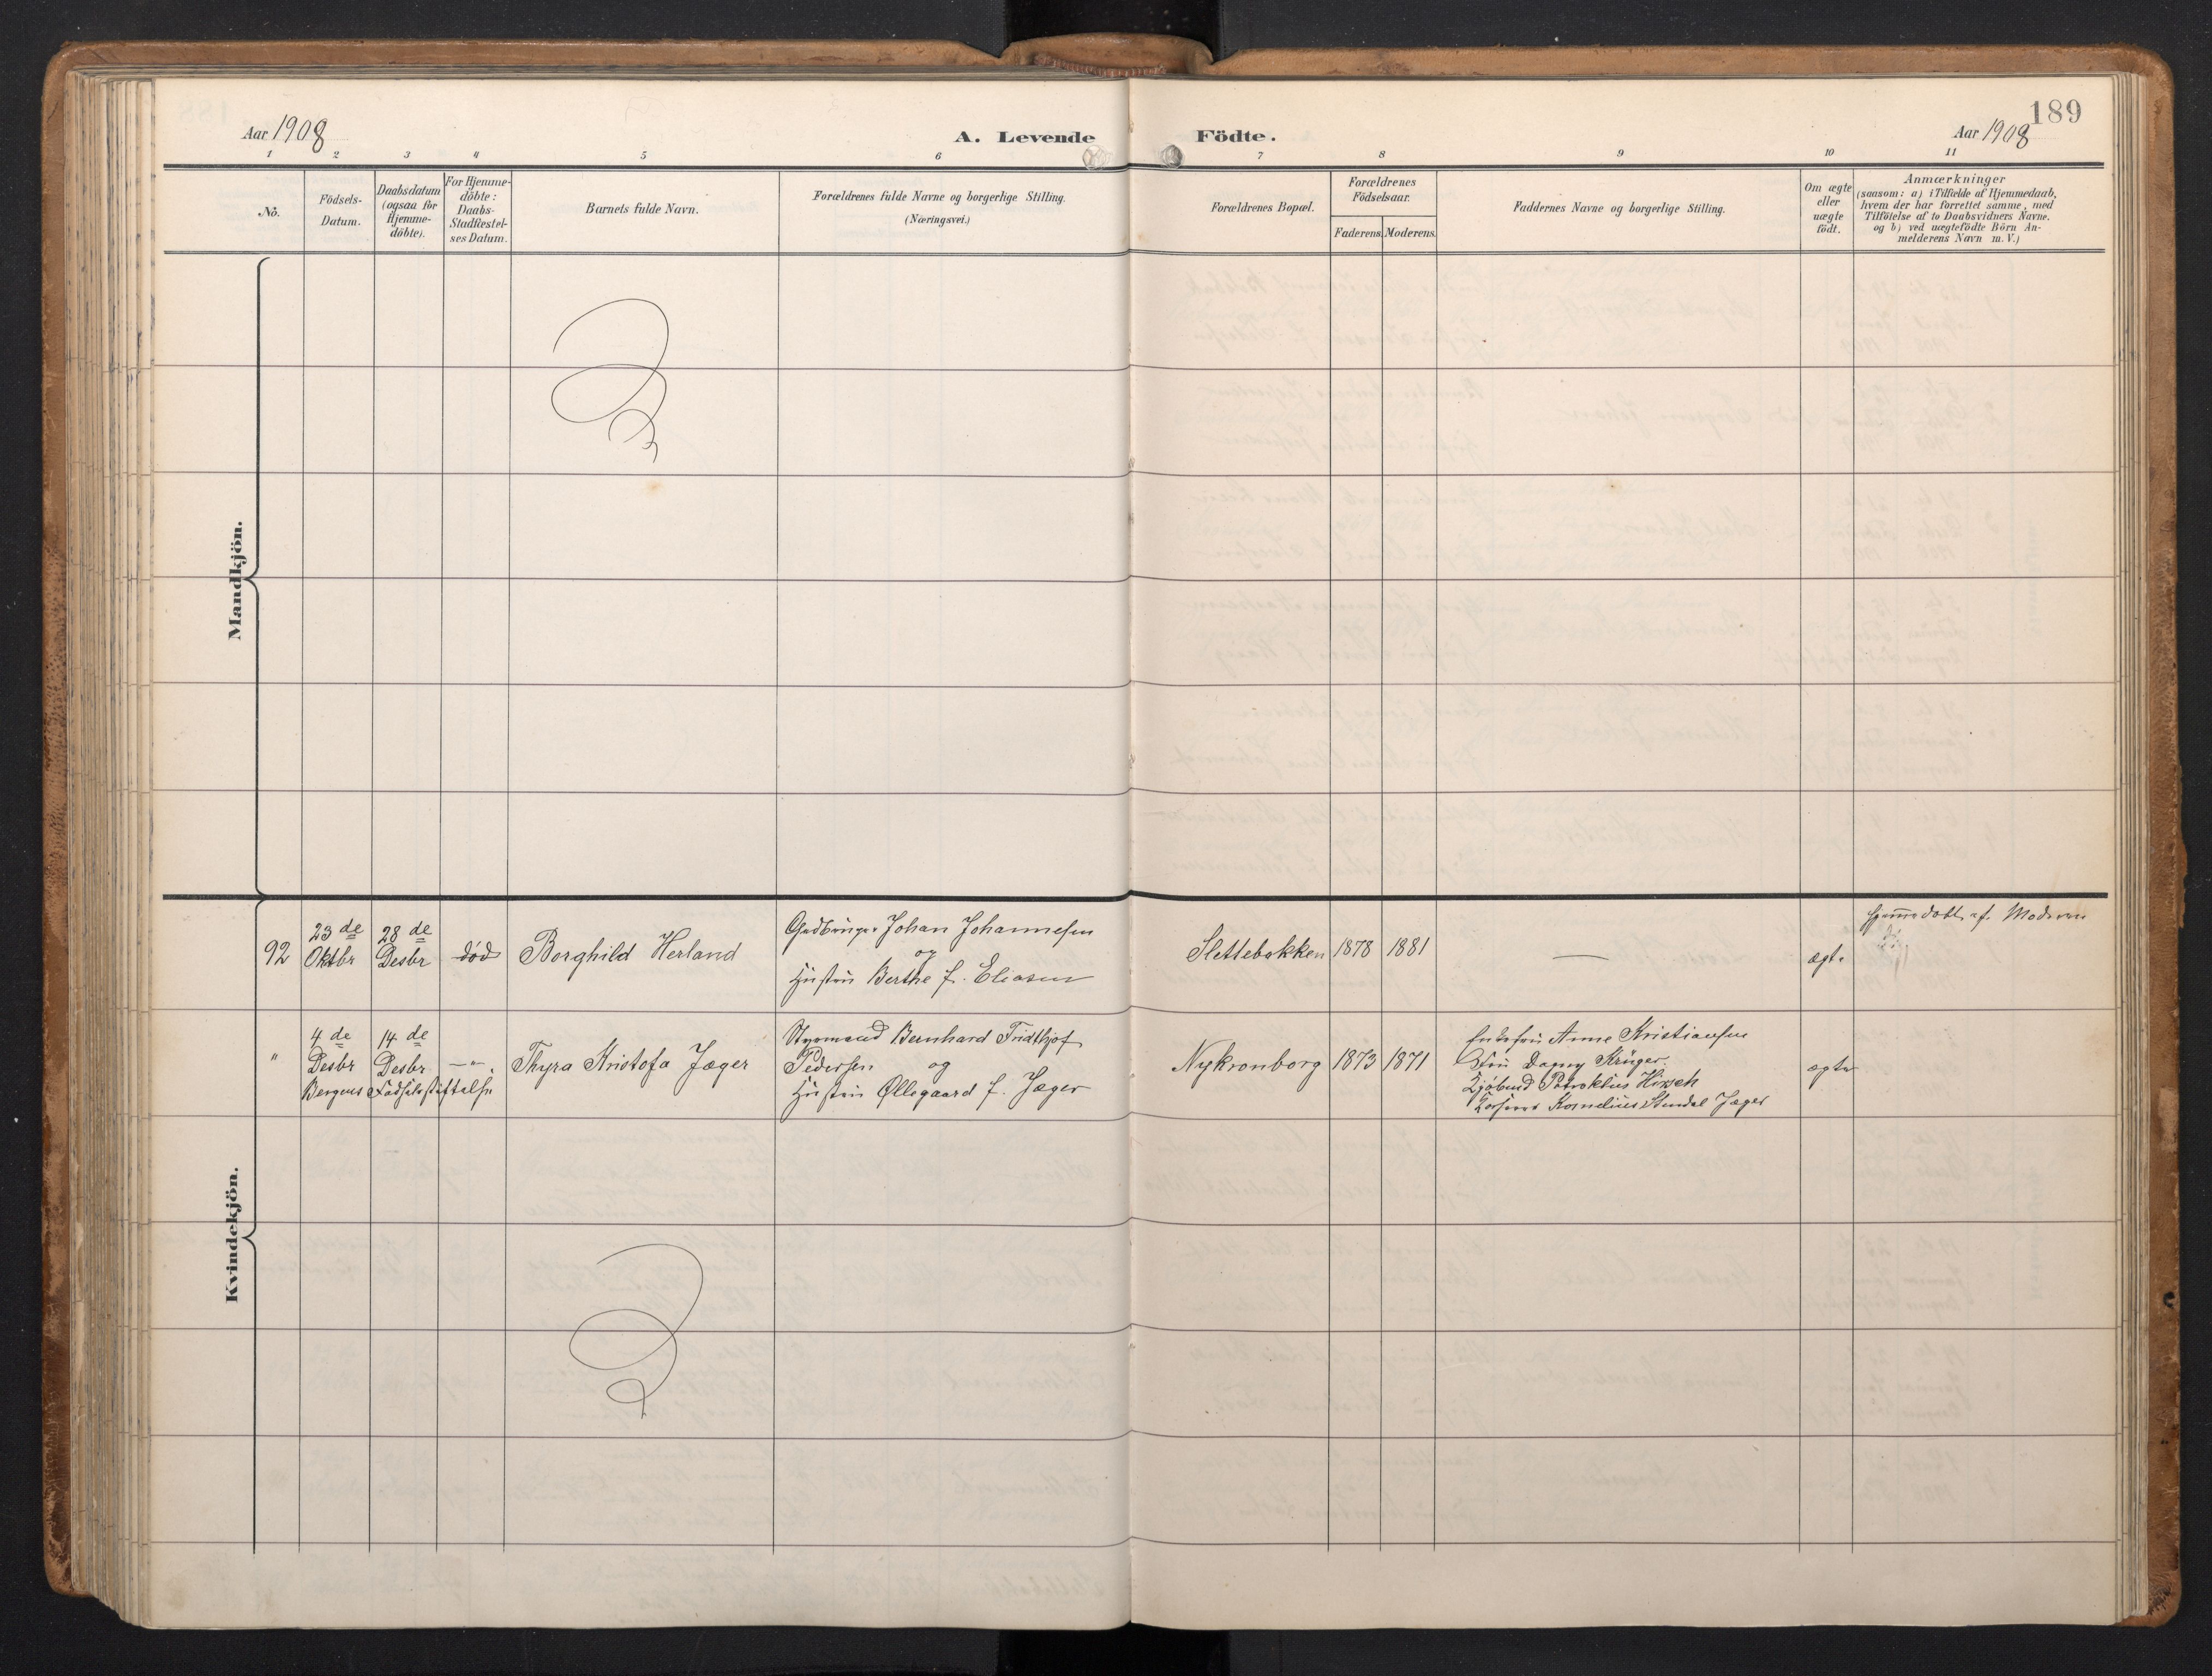 189
Aar 1908
A. Levende Födte.
Aar 1908
1 2 3 4 5 6 7 8 9 10 11
No.
Födsels-
Datum.
Daabsdatum
(ogsaa for
Hjemme-
döbte).
For Hjemme-
döbte:
Daabs-
Stadfæstel-
ses Datum.
Barnets fulde Navn.
Forældrenes fulde Navne og borgerlige Stilling.
(Næringsvei.)
Forældrenes Bopæl.
Forældrenes
Födselsaar.
Faderens. Moderens.
Faddernes Navne og borgerlige Stilling.
Om ægte
eller
uægte
födt.
Anmærkninger
(saasom: a) i Tilfælde af Hjemmedaab,
hvem der har forrettet samme, med
Tilföielse af to Daabsvidners Navne.
og b) ved uægtefödte Börn An-
melderens Navn m. V.)
Mandkjön.
Kvindekjön.
92
23 de
Oktbr
28 de
Desbr
död
Borghild Herland
Johan Johannesen
og
Hustru Berthe f. Eliasen
Slettebakken
1878
1881
—
ægte
Hjemmedöbt af Moderen
"
4 de
Desbr
14 de
Desbr
Bergens Födselsstiftelse
—"—
Thyra Kristofa Jæger
Styrmand Bernhard Fridthjof
Pedersen og
Hustru Øllegaard f. Jæger
Nykronborg
1873
1871
Enkefru Anne Kristiansen
Fru Dagny Krüger
Patroklus Hirsch
Kornelius Stendal Jæger
ægte